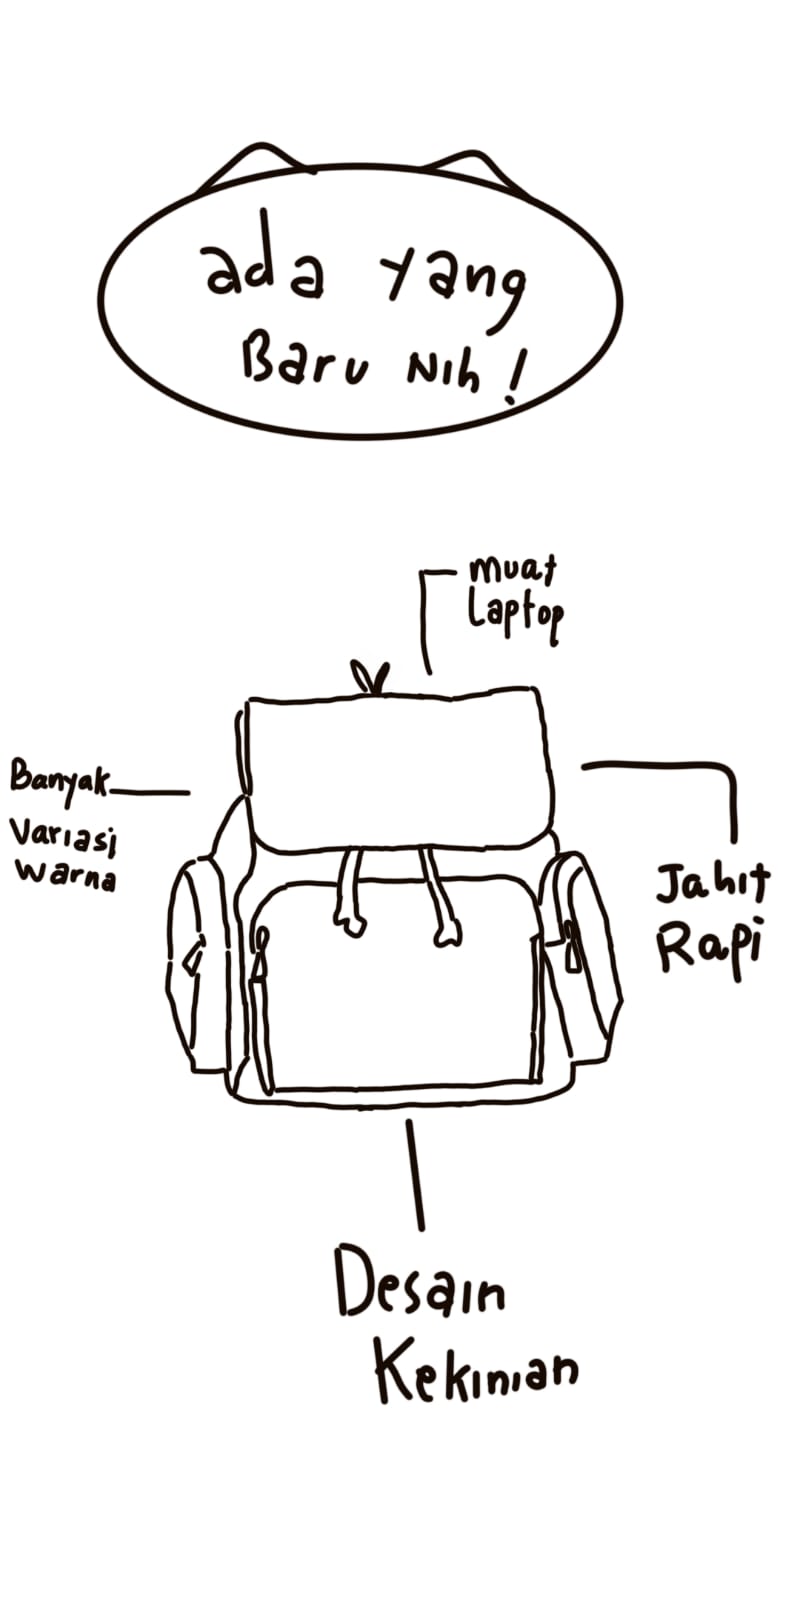 ada yang
Baru Nih!
muat
Laptop
Banyak
Variasi
Warna
Jahit
Rapi
Desain
Kekinian